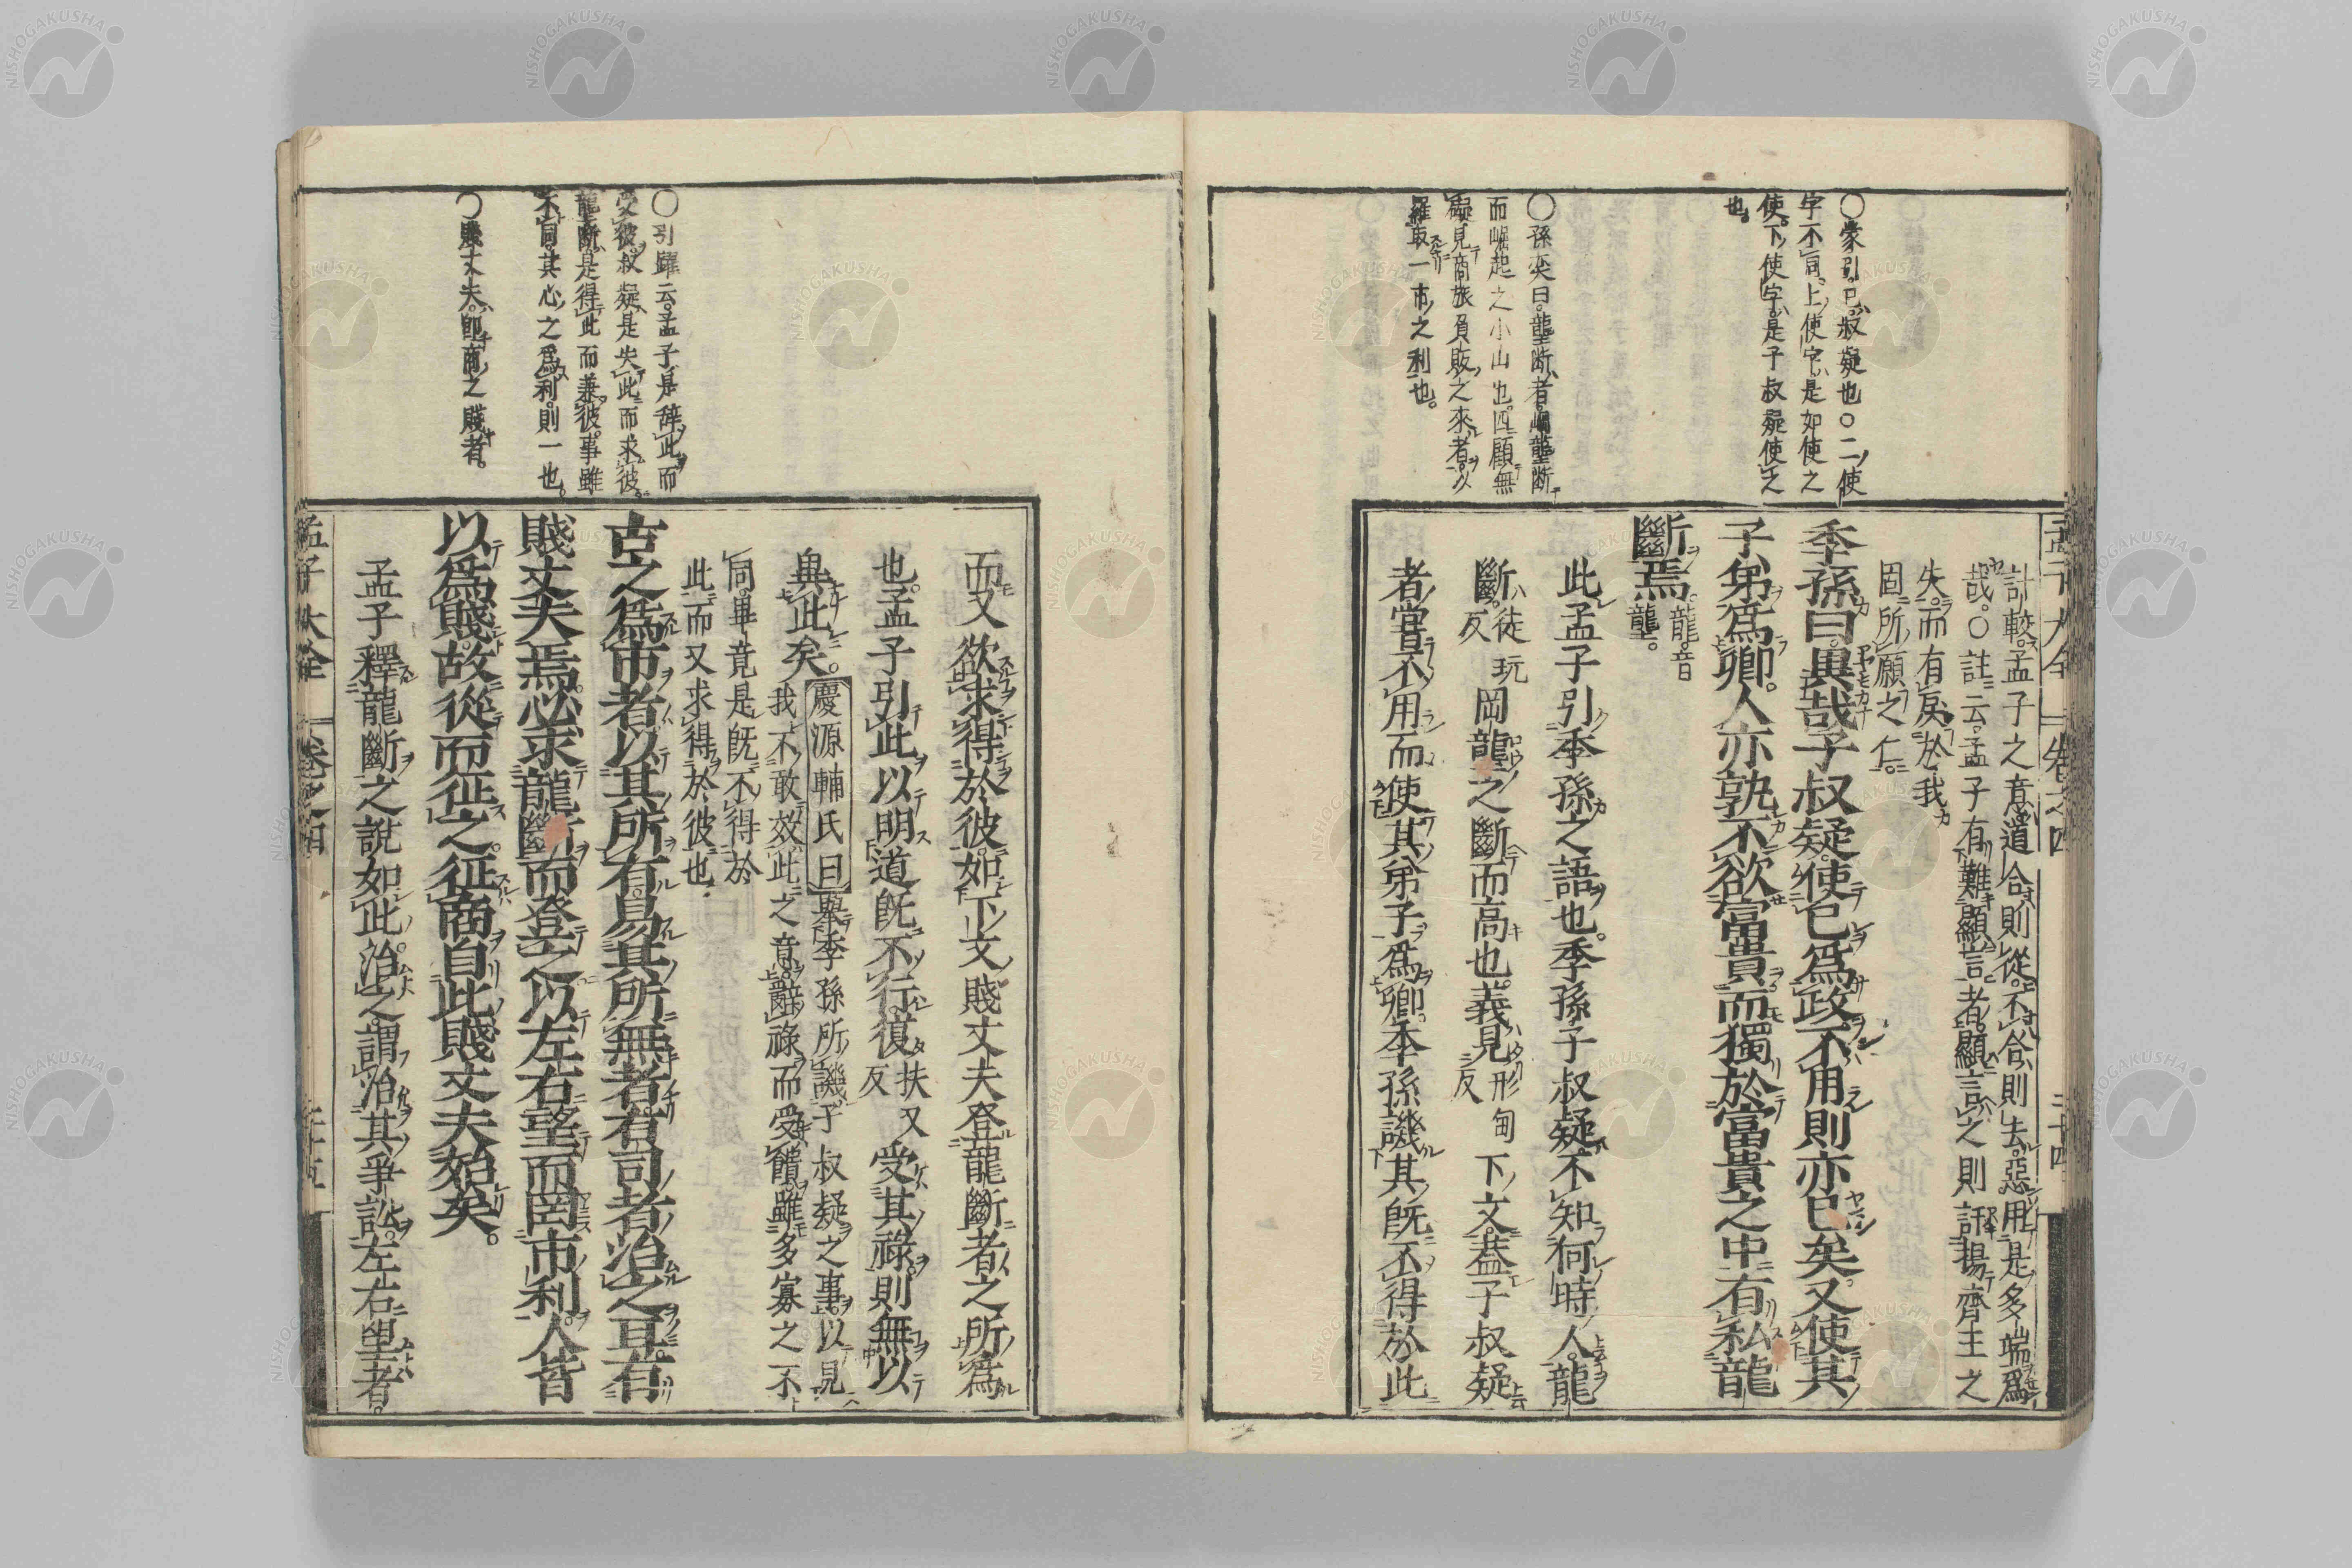 ○蒙引己叔疑也○二使
字不同上使字是如使之
使下使字是子叔疑使之
也
○孫奕曰龍断者崗壟断
而崛起之小山也四顧無
礙見商旅負販之來者以
羅取一市之利也
計較孟子之意道合則從不合則去惡用是多端爲
哉○註云孟子有難顯言者顯言之則訐揚齊王之
失而有戾於我
固所願之仁
季孫曰異哉子叔疑使己爲政不用則亦已矣又使其
子弟爲卿人亦孰不欲富貴而獨於富貴之中有私龍
斷焉龍音壟
此孟子引季孫之語也季孫子叔疑不知何時人龍
斷徒玩反岡壟之斷而高也義見形甸反下文蓋子叔疑
者嘗不用而使其弟子爲卿季孫譏其既不得於此
孟子大全 卷之四 三十四
○引躍云孟子是辭此而
受彼叔疑是失此而求彼
龍断是得此而兼彼事雖
不同其心之爲利則一也
○賤丈夫即商之賤者
而又欲求得於彼如下文賤丈夫登龍斷者之所爲
也孟子引此以明道既不行復扶又反受其祿則無以
異此矣慶源輔氏曰舉季孫所譏子叔疑之事以見
我不敢效此之意辭祿而受饋雖多寡之不
同畢竟是既不得於
此而又求得於彼也
古之爲市者以其所有易其所無者有司者治之耳有
賤丈夫焉必求龍斷而登之以左右望而罔市利人皆
以爲賤故從而征之征商自此賤丈夫始矣
孟子釋龍斷之說如此治之謂治其爭訟左右望者
孟子大全 卷之四 三十五